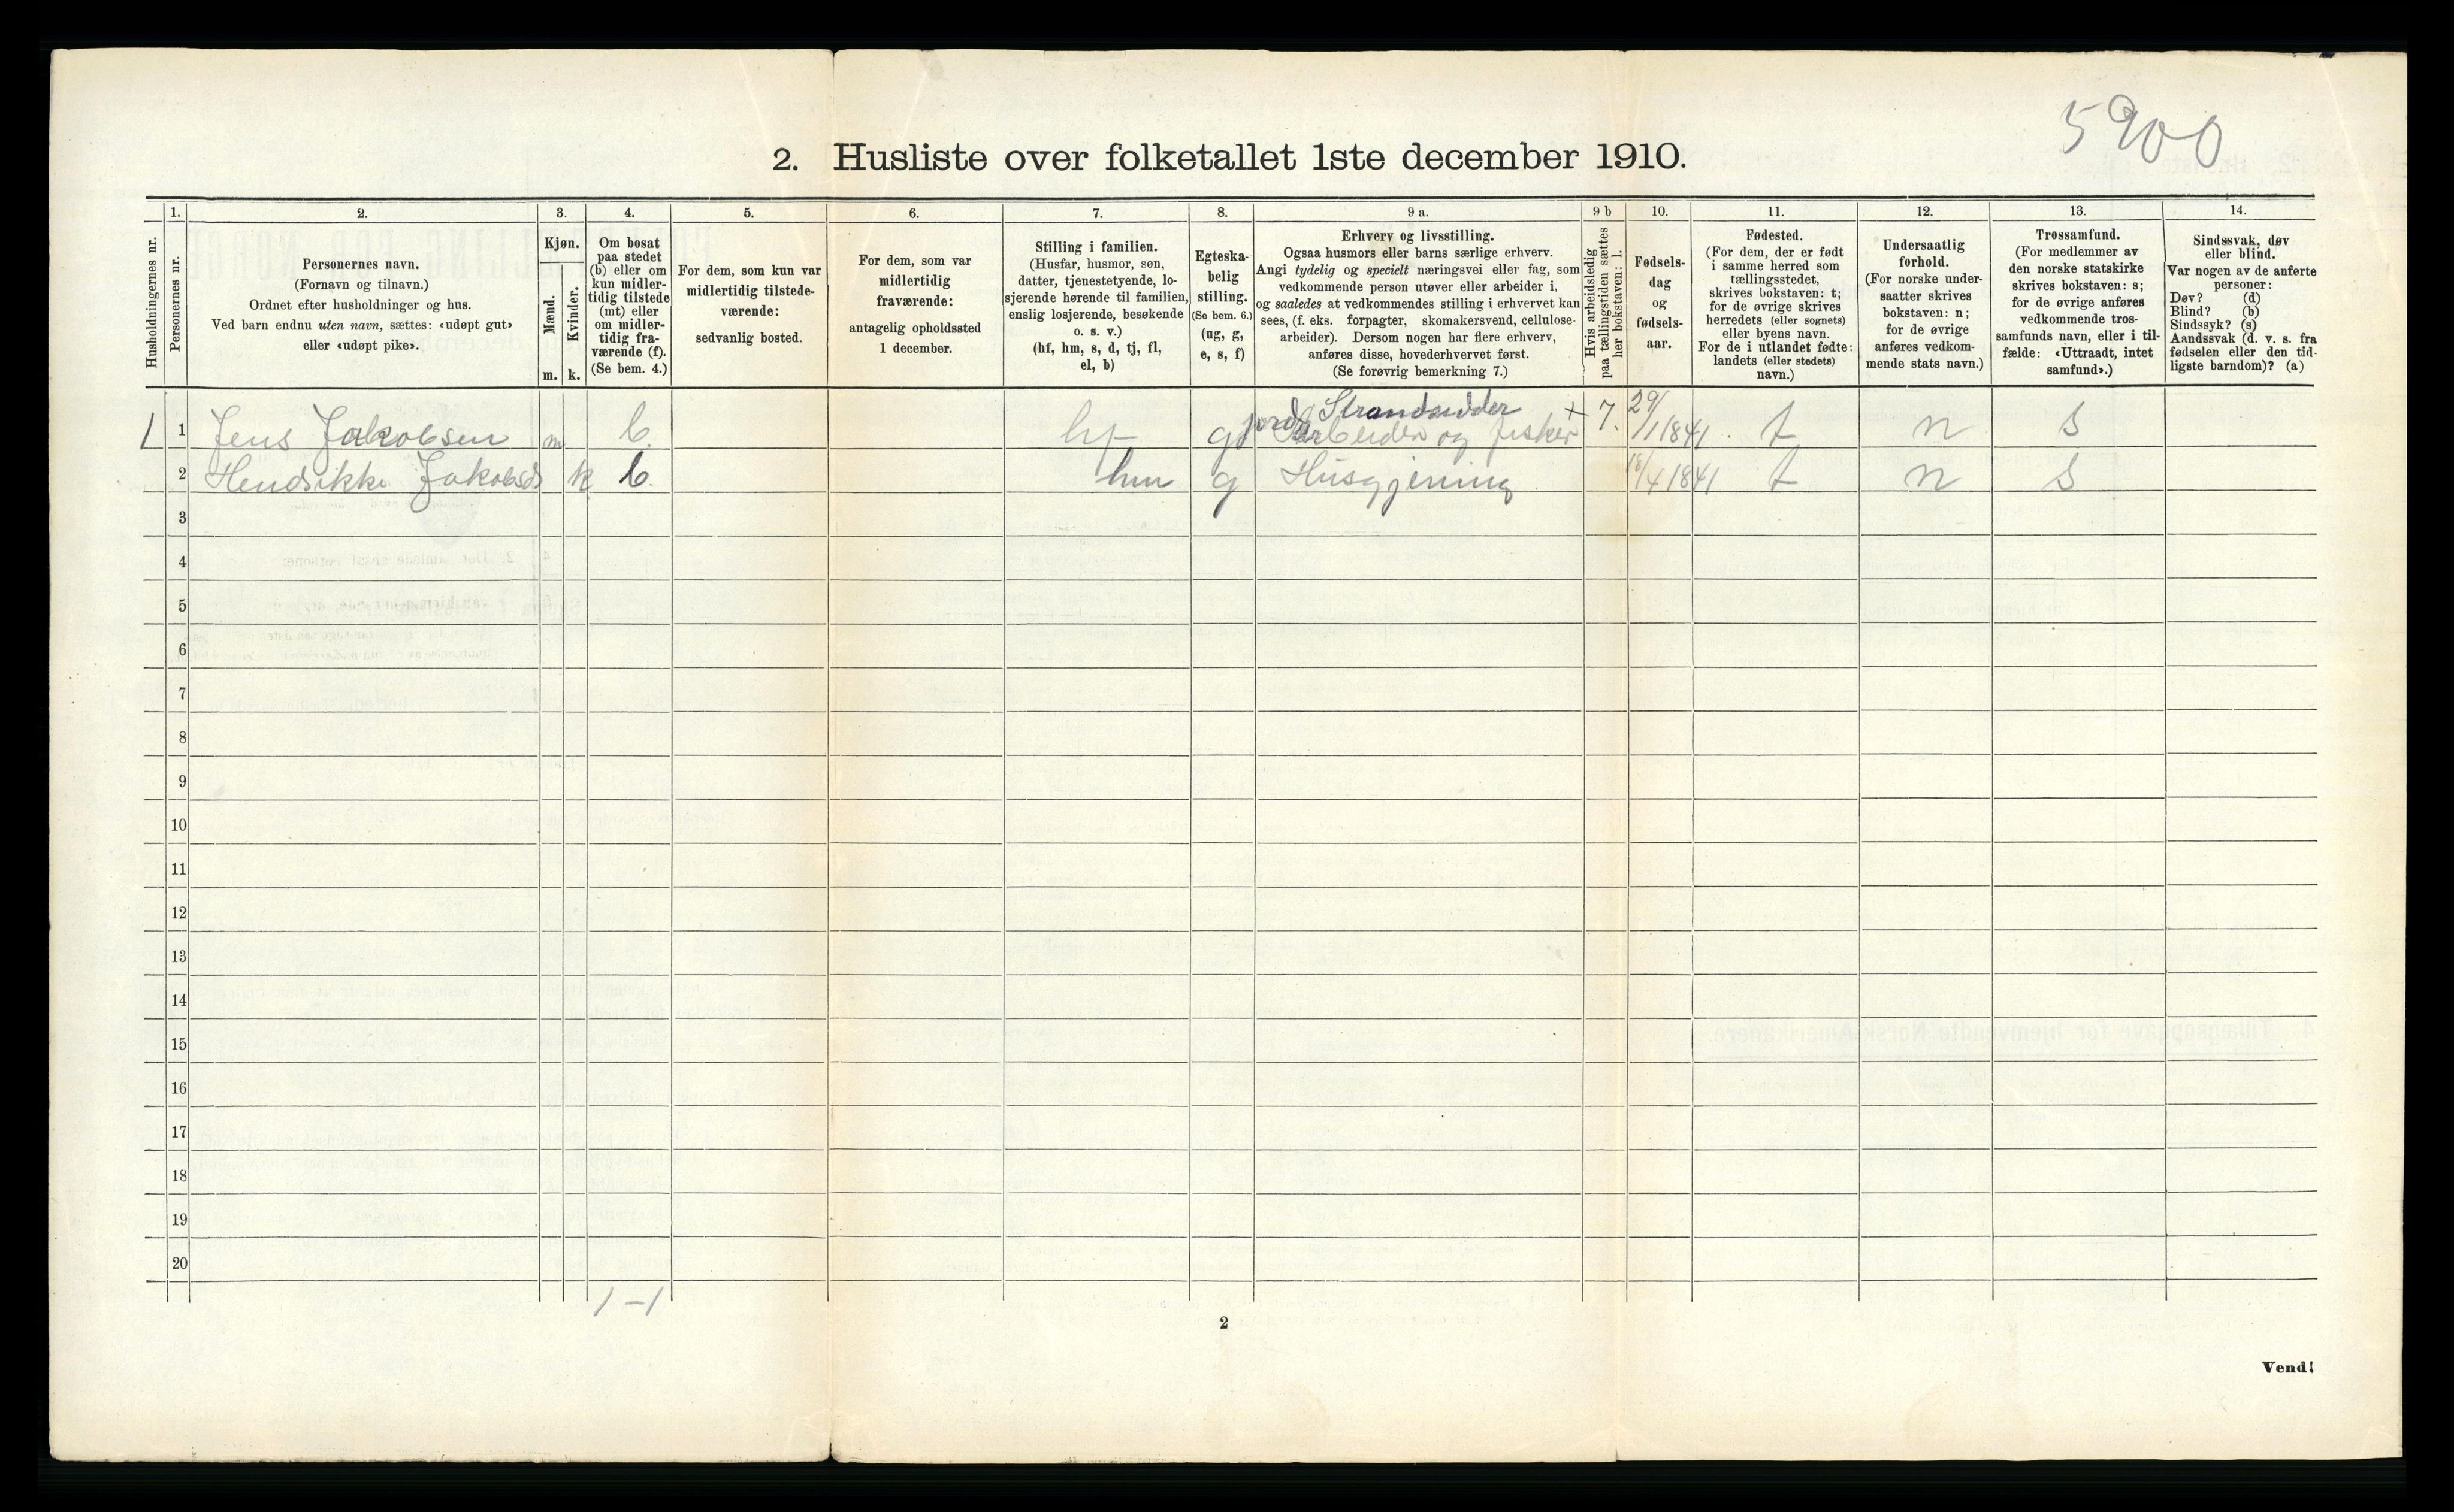 5900
2. Husliste over folketallet 1ste december 1910.
Husholdningernes nr.
1.
Personernes nr.
2.
Personernes navn.
(Fornavn og tilnavn.)
Ordnet efter husholdninger og hus.
Ved barn endnu uten navn, sættes: «udøpt gut»
eller «udøpt pike».
3.
Kjøn.
Mænd.
Kvinder.
m. k.
4.
Om bosat
paa stedet
(b) eller om
kun midler-
tidig tilstede
(mt) eller
om midler-
tidig fra-
værende (f).
(Se bem. 4.)
5.
For dem, som kun var
midlertidig tilstede-
værende:
sedvanlig bosted.
6.
For dem, som var
midlertidig
fraværende:
antagelig opholdssted
1 december.
7.
Stilling i familien.
(Husfar, husmor, søn,
datter, tjenestetyende, lo-
sjerende hørende til familien,
enslig losjerende, besøkende
o. s. v.)
(hf, hm, s, d, tj, fl,
el, b)
8.
Egteska-
belig
stilling.
(Se bem. 6.)
(ug, g,
e, s, f)
9 a.
Erhverv og livsstilling.
Ogsaa husmors eller barns særlige erhverv.
Angi tydelig og specielt næringsvei eller fag, som
vedkommende person utøver eller arbeider i,
og saaledes at vedkommendes stilling i erhvervet kan
sees, (f. eks. forpagter, skomakersvend, cellulose-
arbeider). Dersom nogen har flere erhverv,
anføres disse, hovederhvervet først.
(Se forøvrig bemerkning 7.)
9 b
Hvis arbeidsledig
paa tællingstiden sættes
her bokstaven: l.
10.
Fødsels-
dag
og
fødsels-
aar.
11.
Fødested.
(For dem, der er født
i samme herred som
tællingsstedet,
skrives bokstaven: t;
for de øvrige skrives
herredets (eller sognets)
eller byens navn.
For de i utlandet fødte:
landets (eller stedets)
navn.)
12.
Undersaatlig
forhold.
(For norske under-
saatter skrives
bokstaven: n;
for de øvrige
anføres vedkom-
mende stats navn.)
13.
Trossamfund.
(For medlemmer av
den norske statskirke
skrives bokstaven: s;
for de øvrige anføres
vedkommende tros-
samfunds navn, eller i til-
fælde: «Uttraadt, intet
samfund».)
14.
Sindssvak, døv
eller blind.
Var nogen av de anførte
personer:
Døv? (d)
Blind? (b)
Sindssyk? (s)
Aandssvak (d. v. s. fra
fødselen eller den tid-
ligste barndom)? (a)
Strandsidder
1 1 Jens Jakobsen m b. hf g jord Arbeider og fisker + 7. 29/1 1841. t n s
2 Hendrikke Jakobsd k b. hm g Husgjerning 18/4 1841 t n s
3
4
5
6
7
8
9
10
11
12
13
14
15
16
17
18
19
20
1 - 1
2
Vend!